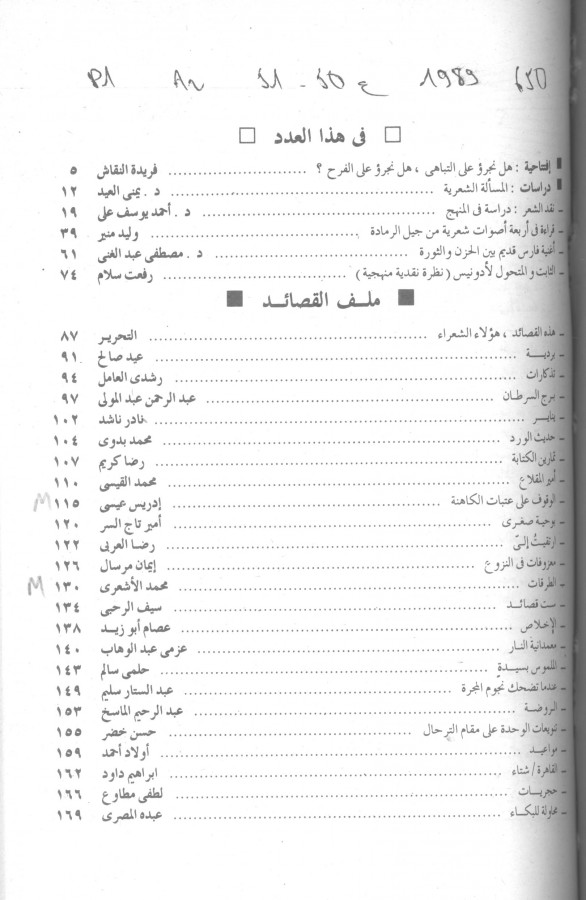 P1 Ar 51 - 50 ع 1989 650
□ فى هذا العدد □
إفتتاحية : هل نجرؤ على التباهى ، هل نجرؤ على الفرح ؟ فريدة النقاش ٥
دراسات : المسألة الشعرية د . يمنى العيد ١٢
- نقد الشعر : دراسة فى المنهج د . أحمد يوسف على ١٩
- قراءة فى أربعة أصوات شعرية من جيل الرمادة وليد منير ٣٩
- أغنية فارس قديم بين الحزن والثورة د . مصطفى عبد الغنى ٦١
- الثابت والمتحول لأدونيس ( نظرة نقدية منهجية ) رفعت سلام ٧٤
■ ملـف القصائـد ■
- هذه القصائد ، هؤلاء الشعراء التحرير ٨٧
- برديـة عيد صالح ٩١
- تذكارات رشدى العامل ٩٤
- برج السرطان عبد الرحمن عبد المولى ٩٧
- ينايـر نادر ناشد ١٠٢
- حديث الورد محمد بدوى ١٠٤
- تمارين الكتابة رضا كريم ١٠٧
- أمير المقلاع محمد القيسى ١١٠
- الوقوف على عتبات الكاهنة إدريس عيسى ١١٥ M
- بوحية صغرى أمير تاج السر ١٢٠
- ارتقيتُ إلىّ رضا العربى ١٢٢
- معزوفات فى النزوع إيمان مرسال ١٢٦
- الطرقات محمد الأشعرى ١٣٠ M
- ست قصائـد سيف الرحبى ١٣٤
- الإخلاص عصام أبو زيـد ١٣٨
- معمدانية النـار عزمى عبد الوهاب ١٤٠
- اللموس بسيـدةٍ حلمى سالم ١٤٣
- عندما تضحك نجوم المجرة عبد الستار سليم ١٤٩
- الروضـة عبد الرحيم الماسخ ١٥٣
- تنويعات الوحدة على مقام الترحال حسن خضر ١٥٥
- مواعيـد أولاد أحمد ١٥٩
- القاهرة / شتاء ابراهيم داود ١٦٢
- حجريـات لطفى مطاوع ١٦٦
- محاولة للبكـاء عبده المصرى ١٦٩